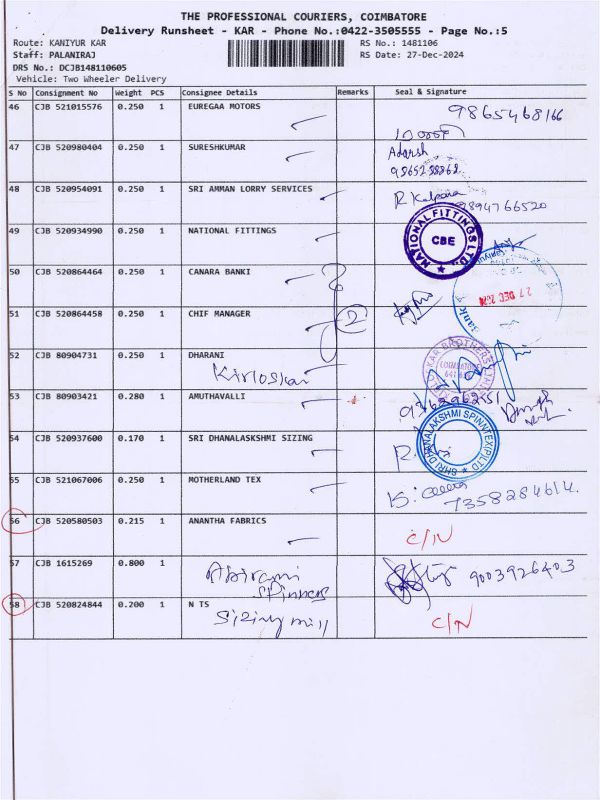 THE PROFESSIONAL COURIERS, COIMBATORE
Delivery Runsheet - KAR - Phone No.:0422-3505555 - Page No.:5
Route: KANIYUR KAR
RS No.: 1481106
Staff: PALANIRAJ
RS Date: 27-Dec-2024
DRS No.: DCJB148110605
Vehicle: Two Wheeler Delivery
S No Consignment No Weight PCS Consignee Details Remarks Seal & Signature
46 CJB 521015576 0.250 1 EUREGAA MOTORS 9865468166
47 CJB 520980404 0.250 1 SURESHKUMAR Adarsh
48 CJB 520954091 0.250 1 SRI AMMAN LORRY SERVICES R Kalpana
9894766520
49 CJB 520934990 0.250 1 NATIONAL FITTINGS NATIONAL FITTINGS LTD. CBE
50 CJB 520864464 0.250 1 CANARA BANKI
27 DEC 2024
51 CJB 520864458 0.250 1 CHIF MANAGER 2
52 CJB 80904731 0.250 1 DHARANI
Kirloskar
53 CJB 80903421 0.280 1 AMUTHAVALLI
SHRI DHANALAKSHMI SPINNTEX(P)LTD
54 CJB 520937600 0.170 1 SRI DHANALASKSHMI SIZING
55 CJB 521067006 0.250 1 MOTHERLAND TEX
7358284614
56 CJB 520580503 0.215 1 ANANTHA FABRICS C/N
57 CJB 1615269 0.800 1 Abirami
Spinners
9003926403
58 CJB 520824844 0.200 1 N TS C/N
Sizing mill